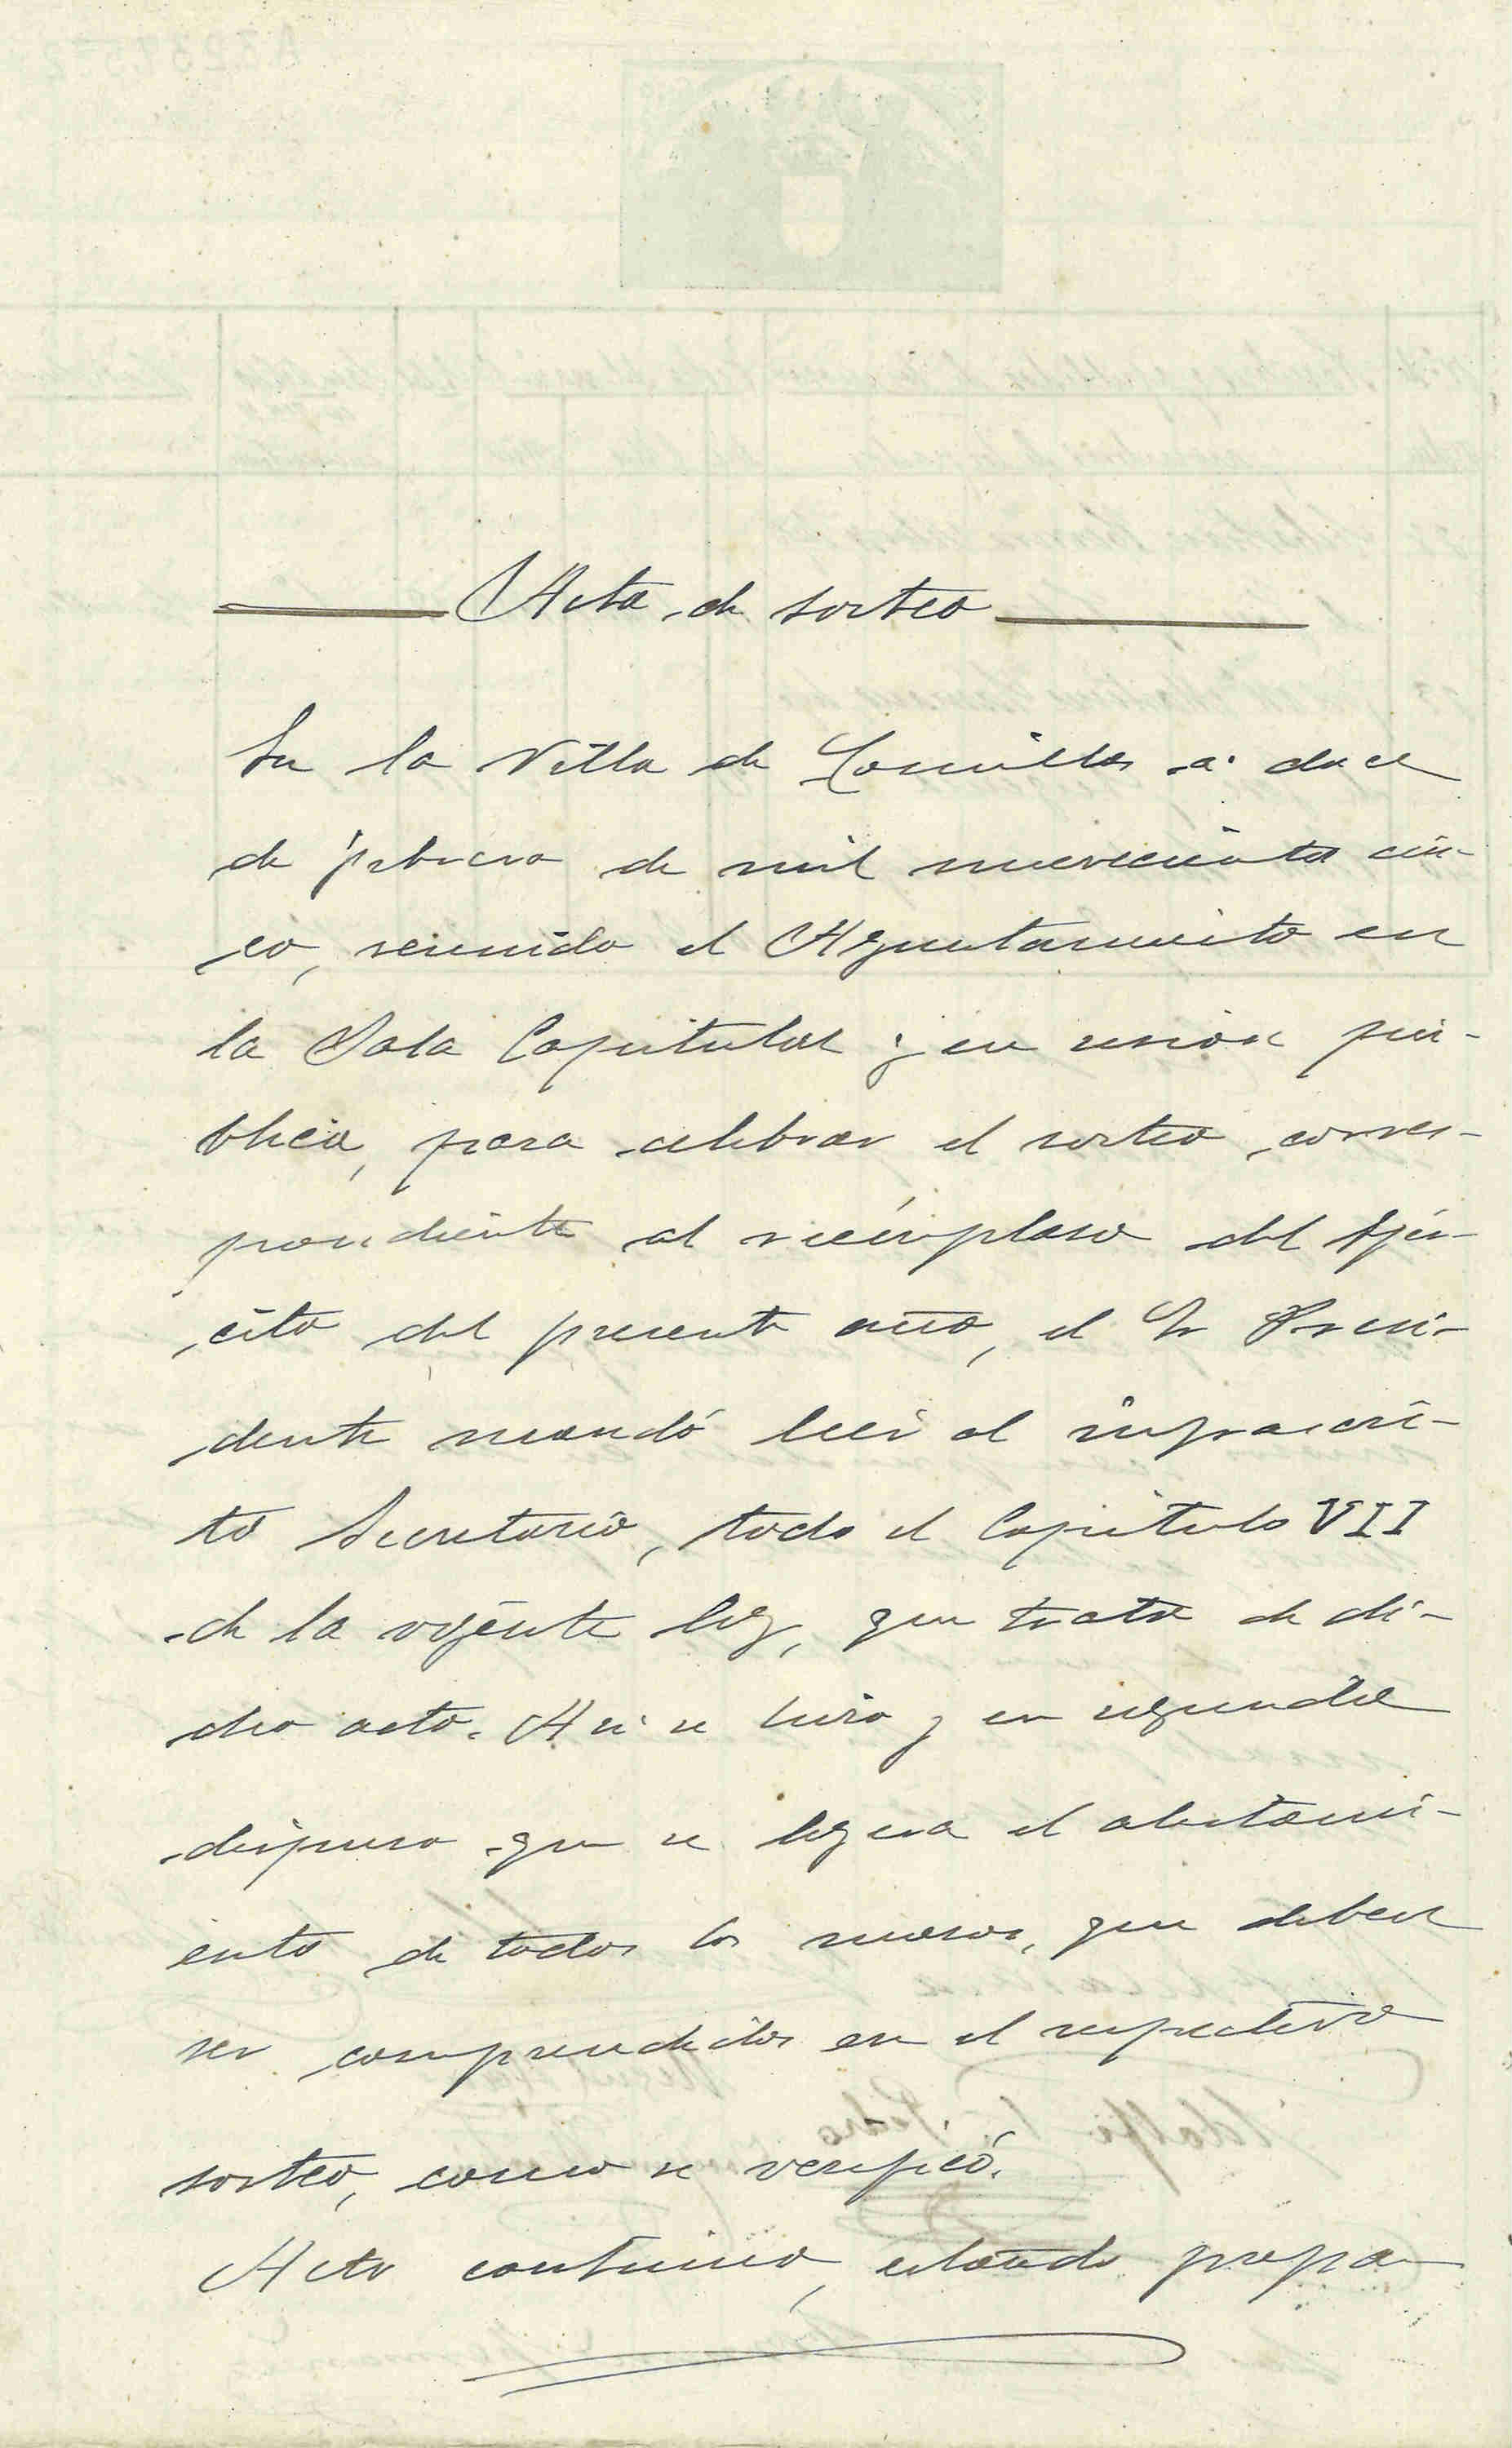 Acta de sorteo
En la Villa de Comillas a doce
de febrero de mil novecientos cin-
co, reunido el Ayuntamiento en
la Sala Capitular y en sesión pú-
blica, para celebrar el sorteo corres-
pondiente al reemplaso del Ejér-
cito del presente año, el Sr Presi-
dente mandó leer al infrascri-
to Secretario, todo el Capitulo VII
de la vigente ley, que trata de di-
cho acto. Asi se hizo y en seguida
dispuso que se leyera el alistami-
ento de todos los mozos, que deben
ser comprendidos en el respectivo
sorteo, como se verificó.
Acto continuo, estando prepa